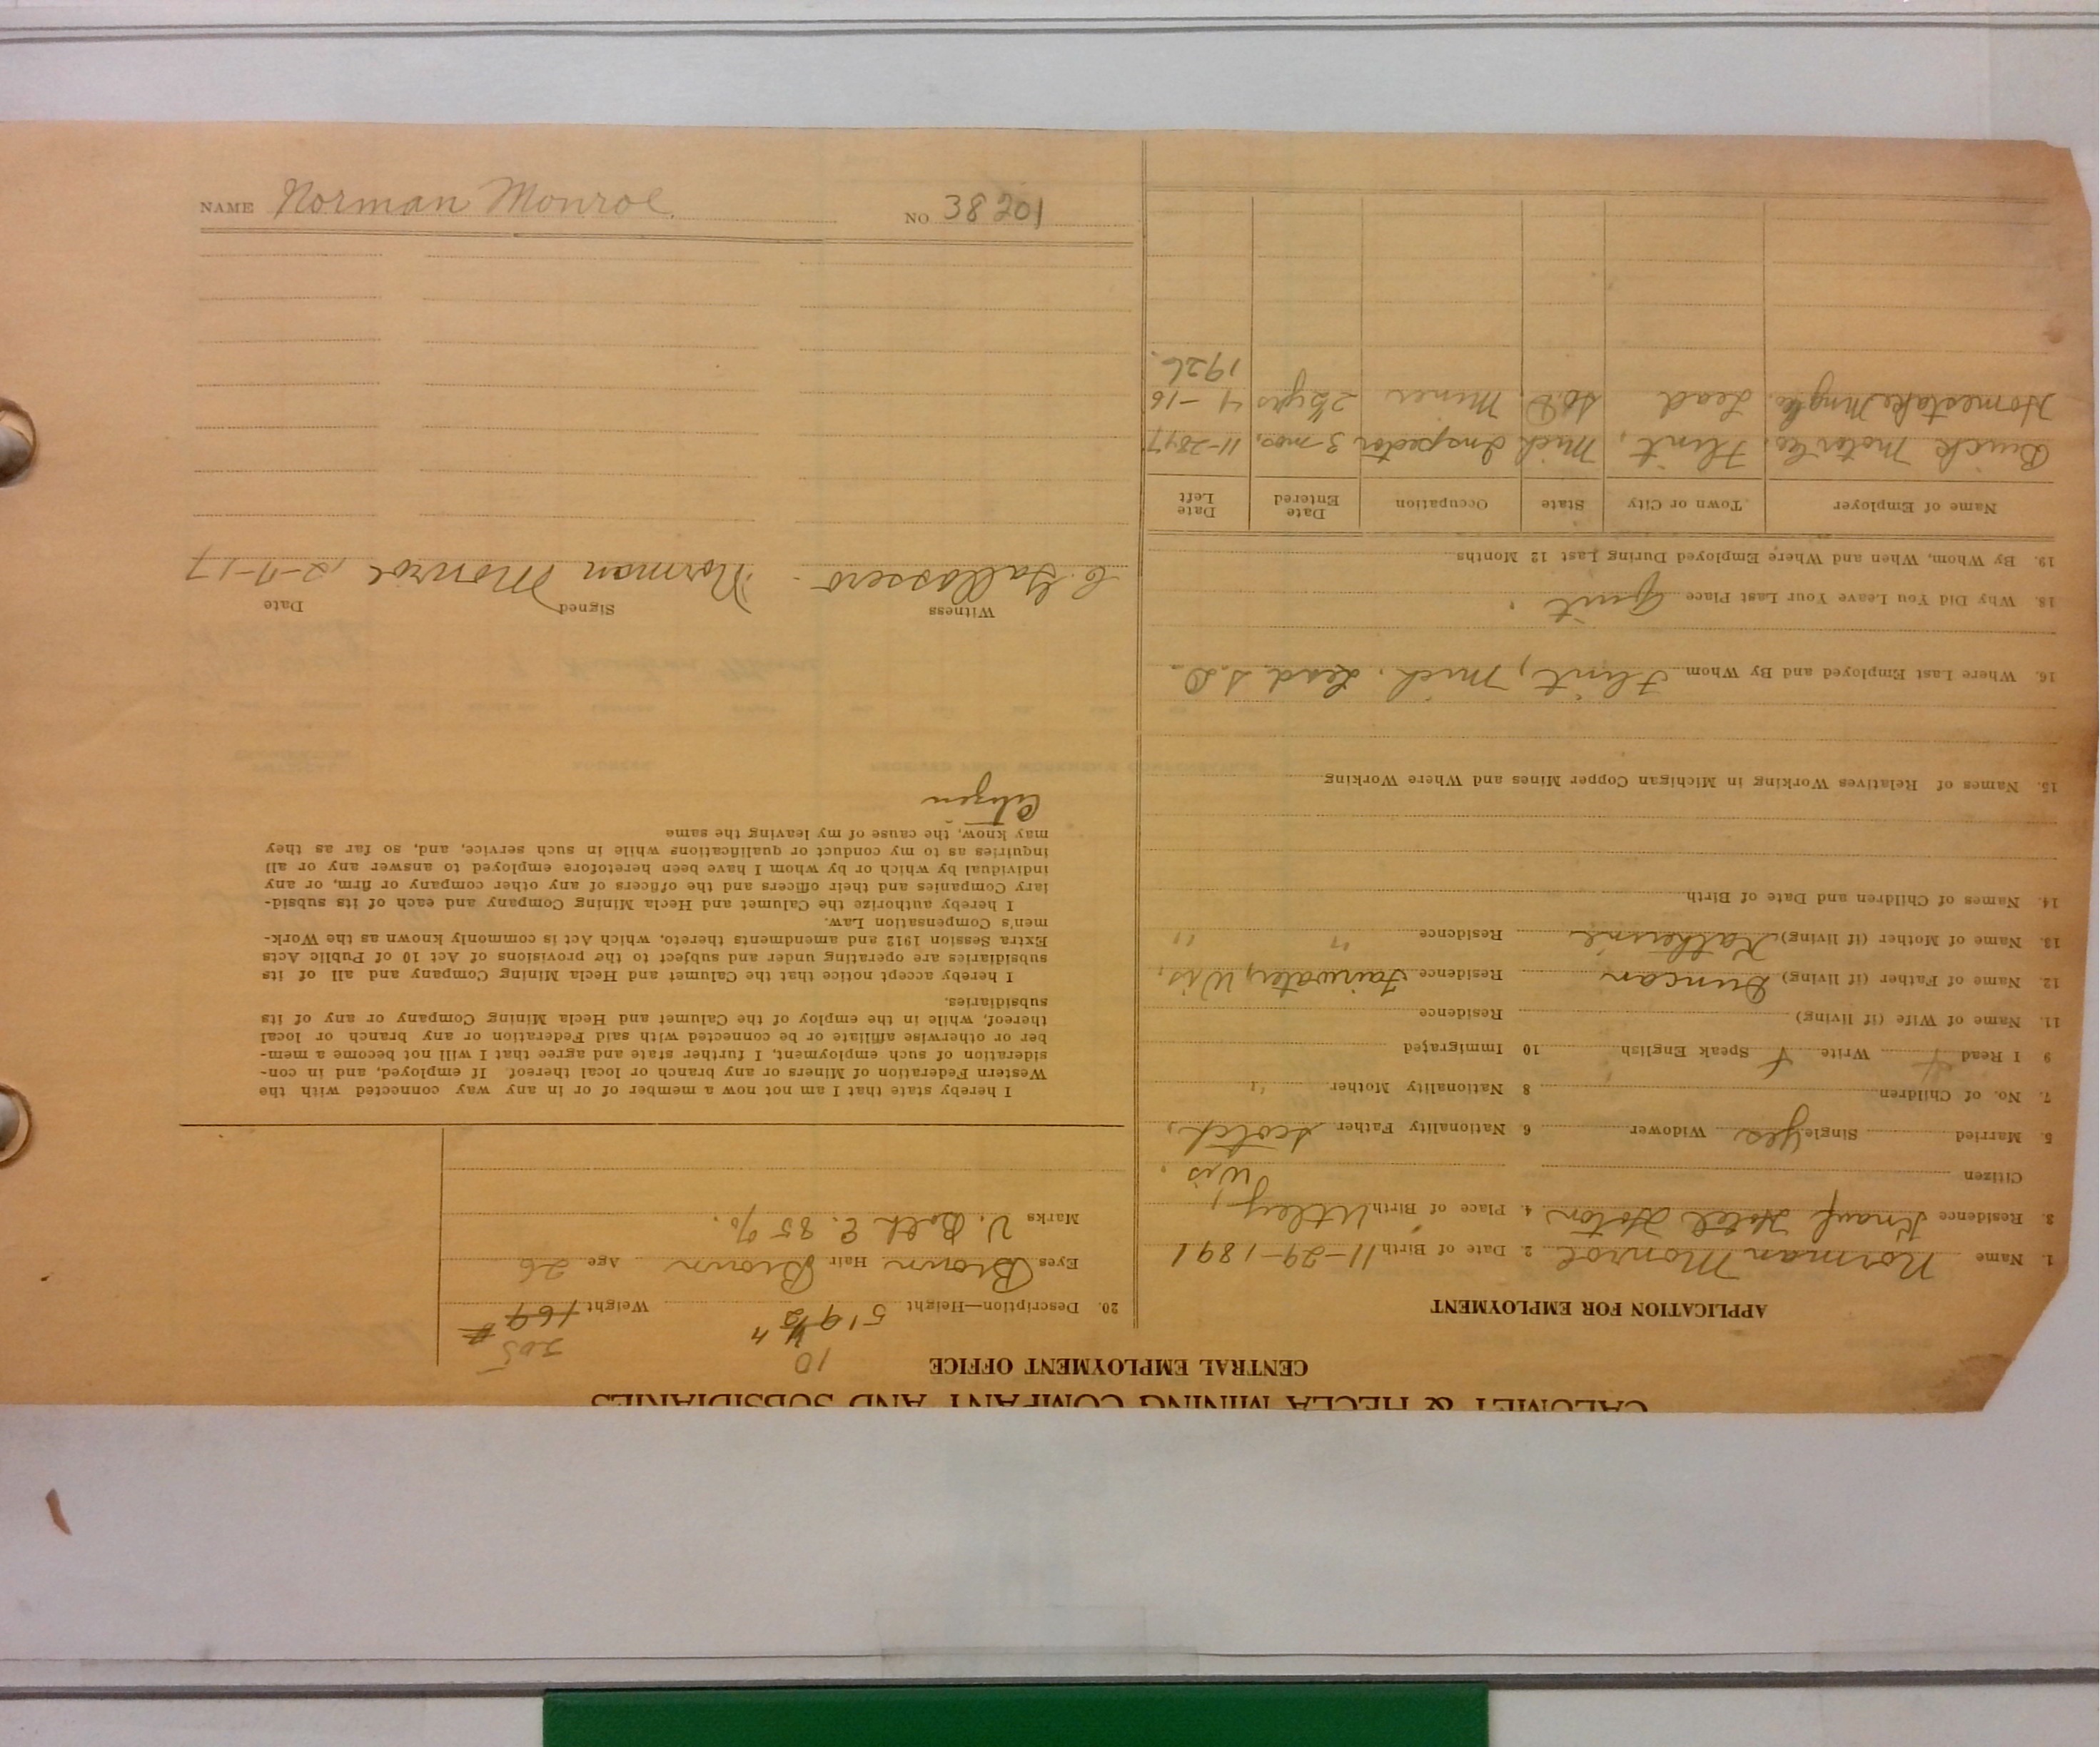 CALUMET & HECLA MINING COMPANY AND SUBSIDIARIES
CENTRAL EMPLOYMENT OFFICE
APPLICATION FOR EMPLOYMENT
1. Name Norman Monroe 2. Date of Birth 11-29-1891
3. Residence Knauf Hotel Hoton 4. Place of Birth Utley,
Citizen Wis.
5. Married Single yes Widower 6 Nationality Father Scotch,
7. No. of Children 8 Nationality Mother "
9 I Read Write Speak English 10 Immigrated
11. Name of Wife (if living) Residence
12. Name of Father (if living) Duncan Residence Fairwater, Wis.
13. Name of Mother (if living) Katherine Residence " "
14. Names of Children and Date of Birth
15. Names of Relatives Working in Michigan Copper Mines and Where Working
16. Where Last Employed and By Whom Flint, Mich. Lead S.D.
18. Why Did You Leave Your Last Place Quit.
19. By Whom, When and Where Employed During Last 12 Months
Name of Employer Town or City State Occupation Date Entered Date Left
Buick Motor Co. Flint, Mich Inspector 3 mos. 11-28-17
Homestake Mng Co. Lead So. D. Miner 2½ yrs 4-16
1926.
10 205
20. Description—Height 5' 9½" Weight 169 #
Eyes Brown Hair Brown Age 26
Marks V. Both E. 85%.
I hereby state that I am not now a member of or in any way connected with the
Western Federation of Miners or any branch or local thereof. If employed, and in con-
sideration of such employment, I further state and agree that I will not become a mem-
ber or otherwise affiliate or be connected with said Federation or any branch or local
thereof, while in the employ of the Calumet and Hecla Mining Company or any of its
subsidiaries.
I hereby accept notice that the Calumet and Hecla Mining Company and all of its
subsidiaries are operating under and subject to the provisions of Act 10 of Public Acts
Extra Session 1912 and amendments thereto, which Act is commonly known as the Work-
men's Compensation Law.
I hereby authorize the Calumet and Hecla Mining Company and each of its subsid-
iary Companies and their officers and the officers of any other company or firm, or any
individual by which or by whom I have been heretofore employed to answer any or all
inquiries as to my conduct or qualifications while in such service, and, so far as they
may know, the cause of my leaving the same
Citizen
Witness Signed Date
C. Gallossero Norman Monroe 12-7-17
NAME Norman Monroe. NO. 38201